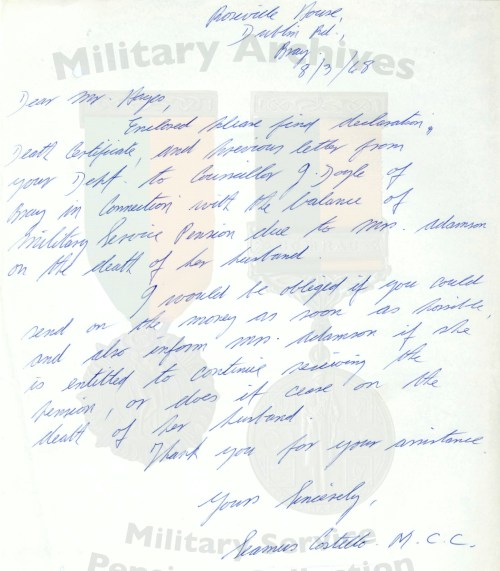 Roseville House,
Dublin Rd.,
Bray
8/3/68
Military Archives
Dear Mr. Hayes,
Enclosed please find declaration,
Death Certificate, and previous letter from
your Dept. to Councillor J. Doyle of
Bray in Connection with the balance of
Military Service Pension due to Mrs. Adamson
on the death of her husband.
I would be obliged if you could
send on the money as soon as possible,
and also inform Mrs. Adamson if she
is entitled to continue receiving the
pension, or does it cease on the
death of her husband.
Thank you for your assistance.
Yours Sincerely,
Seamus Costello. M.C.C.
Military Service
Pensions Collection